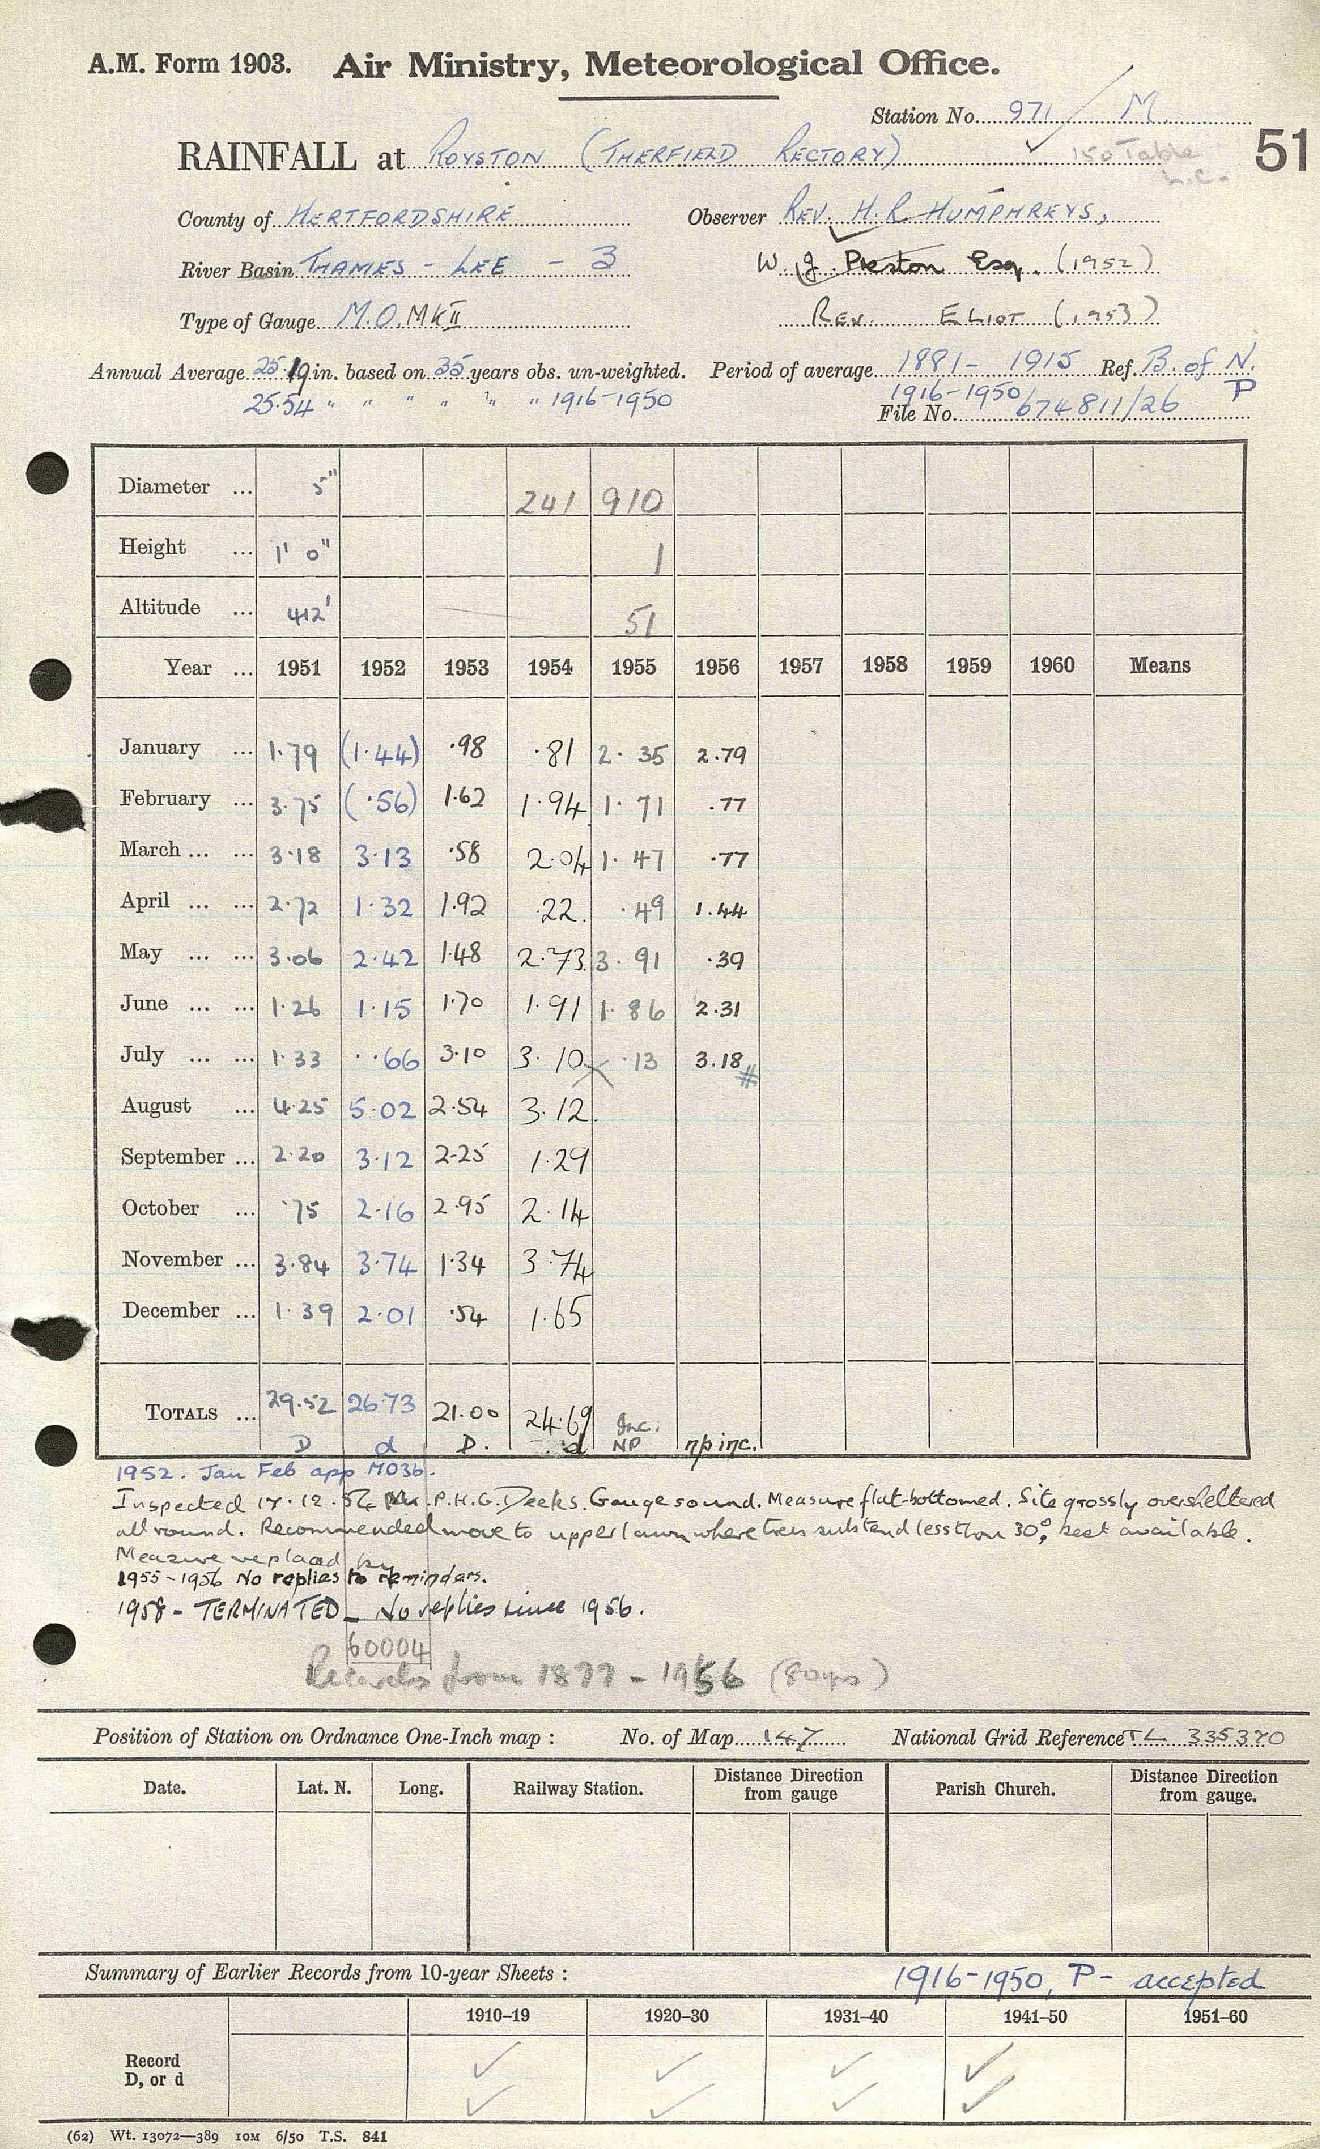 A.M. Form 1903. Air Ministry, Meteorological Office.
Station No. 971 / M
RAINFALL at ROYSTON (THERFIELD RECTORY) 150 Table 51
County of HERTFORDSHIRE Observer REV. H. R. HUMPHREYS,
River Basin THAMES - LEE - 3 W. J. Preston Esq. (1952)
Type of Gauge M.O. MK II REV. ELIOT (1953)
Annual Average 25.19 in. based on 35 years obs. un-weighted. Period of average 1881 - 1915 Ref. B. of N.
25.54 " " " " " " 1916-1950 1916-1950 P
File No. 674811/26
Diameter ... 5" 241 910
Height ... 1' 0" 1
Altitude ... 412' 51
Year ... 1951 1952 1953 1954 1955 1956 1957 1958 1959 1960 Means
January ... 1.79 (1.44) .98 .81 2.35 2.79
February ... 3.75 (.56) 1.62 1.94 1.71 .77
March ... ... 3.18 3.13 .58 2.04 1.47 .77
April ... ... 2.72 1.32 1.92 .22 .49 1.44
May ... ... 3.06 2.42 1.48 2.73 3.91 .39
June ... ... 1.26 1.15 1.70 1.91 1.86 2.31
July ... ... 1.33 .66 3.10 3.10 .13 3.18 #
August ... 4.25 5.02 2.54 3.12
September ... 2.20 3.12 2.25 1.29
October ... .75 2.16 2.95 2.14
November ... 3.84 3.74 1.34 3.74
December ... 1.39 2.01 .54 1.65
TOTALS ... 29.52 26.73 21.00 24.69 Inc.
D d D. d NP np inc.
1952. Jan Feb app MO3b.
Inspected 17.12.52 Mr. P.H.G. Deeks. Gauge sound. Measure flat-bottomed. Site grossly oversheltered
all round. Recommended move to upper lawn where trees subtend less than 30°, best available.
Measure replaced by
1955-1956 No replies to reminders.
1958 - TERMINATED - No replies since 1956.
60004
Records from 1877 - 1956 (80yrs)
Position of Station on Ordnance One-Inch map : No. of Map 147 National Grid Reference TL 335370
Date. Lat. N. Long. Railway Station. Distance Direction from gauge Parish Church. Distance Direction from gauge.
Summary of Earlier Records from 10-year Sheets : 1916-1950, P - accepted
1910-19 1920-30 1931-40 1941-50 1951-60
Record ✓ ✓ ✓ ✓
D, or d ✓ ✓ ✓ ✓
(62) Wt. 13072—389 10M 6/50 T.S. 841